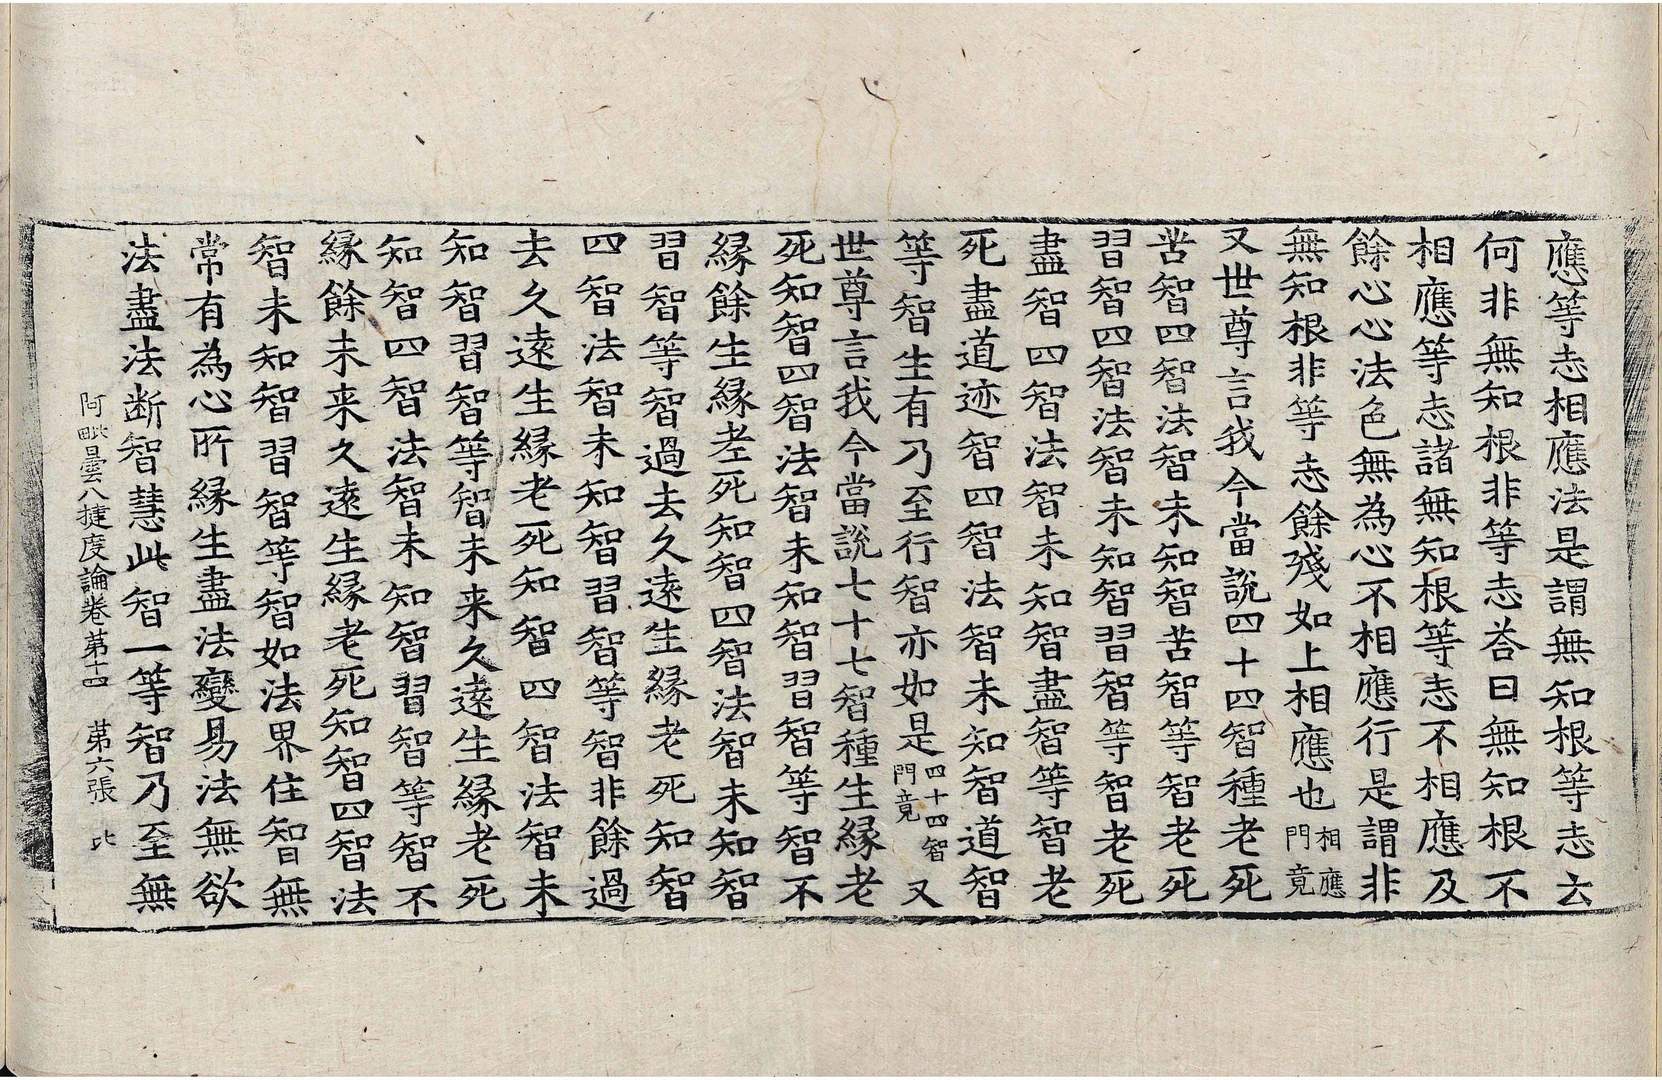 應等志相應法是謂無知根等志云
何非無知根非等志荅曰無知根不
相應等志諸無知根等志不相應及
餘心心法色無為心不相應行是謂非
無知根非等志餘殘如上相應也相應門竟
又世尊言我今當說四十四智種老死
苦智四智法智未知智苦智等智老死
習智四智法智未知智習智等智老死
盡智四智法智未知智盡智等智老
死盡道迹智四智法智未知智道智
等智生有乃至行智亦如是四十四智門竟又
世尊言我今當說七十七智種生緣老
死知智四智法智未知智習智等智不
緣餘生緣老死知智四智法智未知智
習智等智過去久遠生緣老死知智
四智法智未知智習智等智非餘過
去久遠生緣老死知智四智法智未
知智習智等智未来久遠生緣老死
知智四智法智未知智習智等智不
緣餘未来久遠生緣老死知智四智法
智未知智習智等智如法界住智無
常有為心所緣生盡法變易法無欲
法盡法断智慧此智一等智乃至無
阿毗曇八揵度論卷第十四 第六張